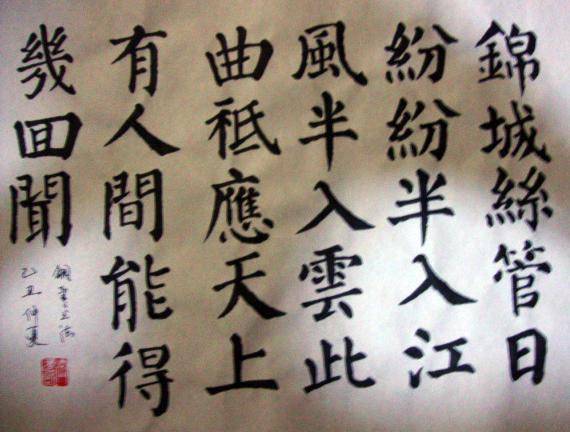 錦城絲管日
紛紛半入江
風半入雲此
曲祗應天上
有人間能得
幾回聞
乙丑仲夏